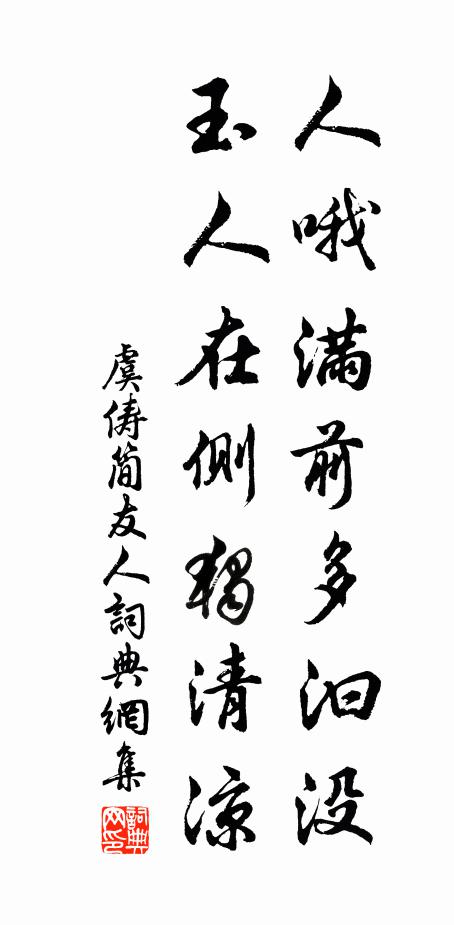 人哦满前多汩没
玉人在侧獨清凉
虞俦简友人詞典網集
詞典网印